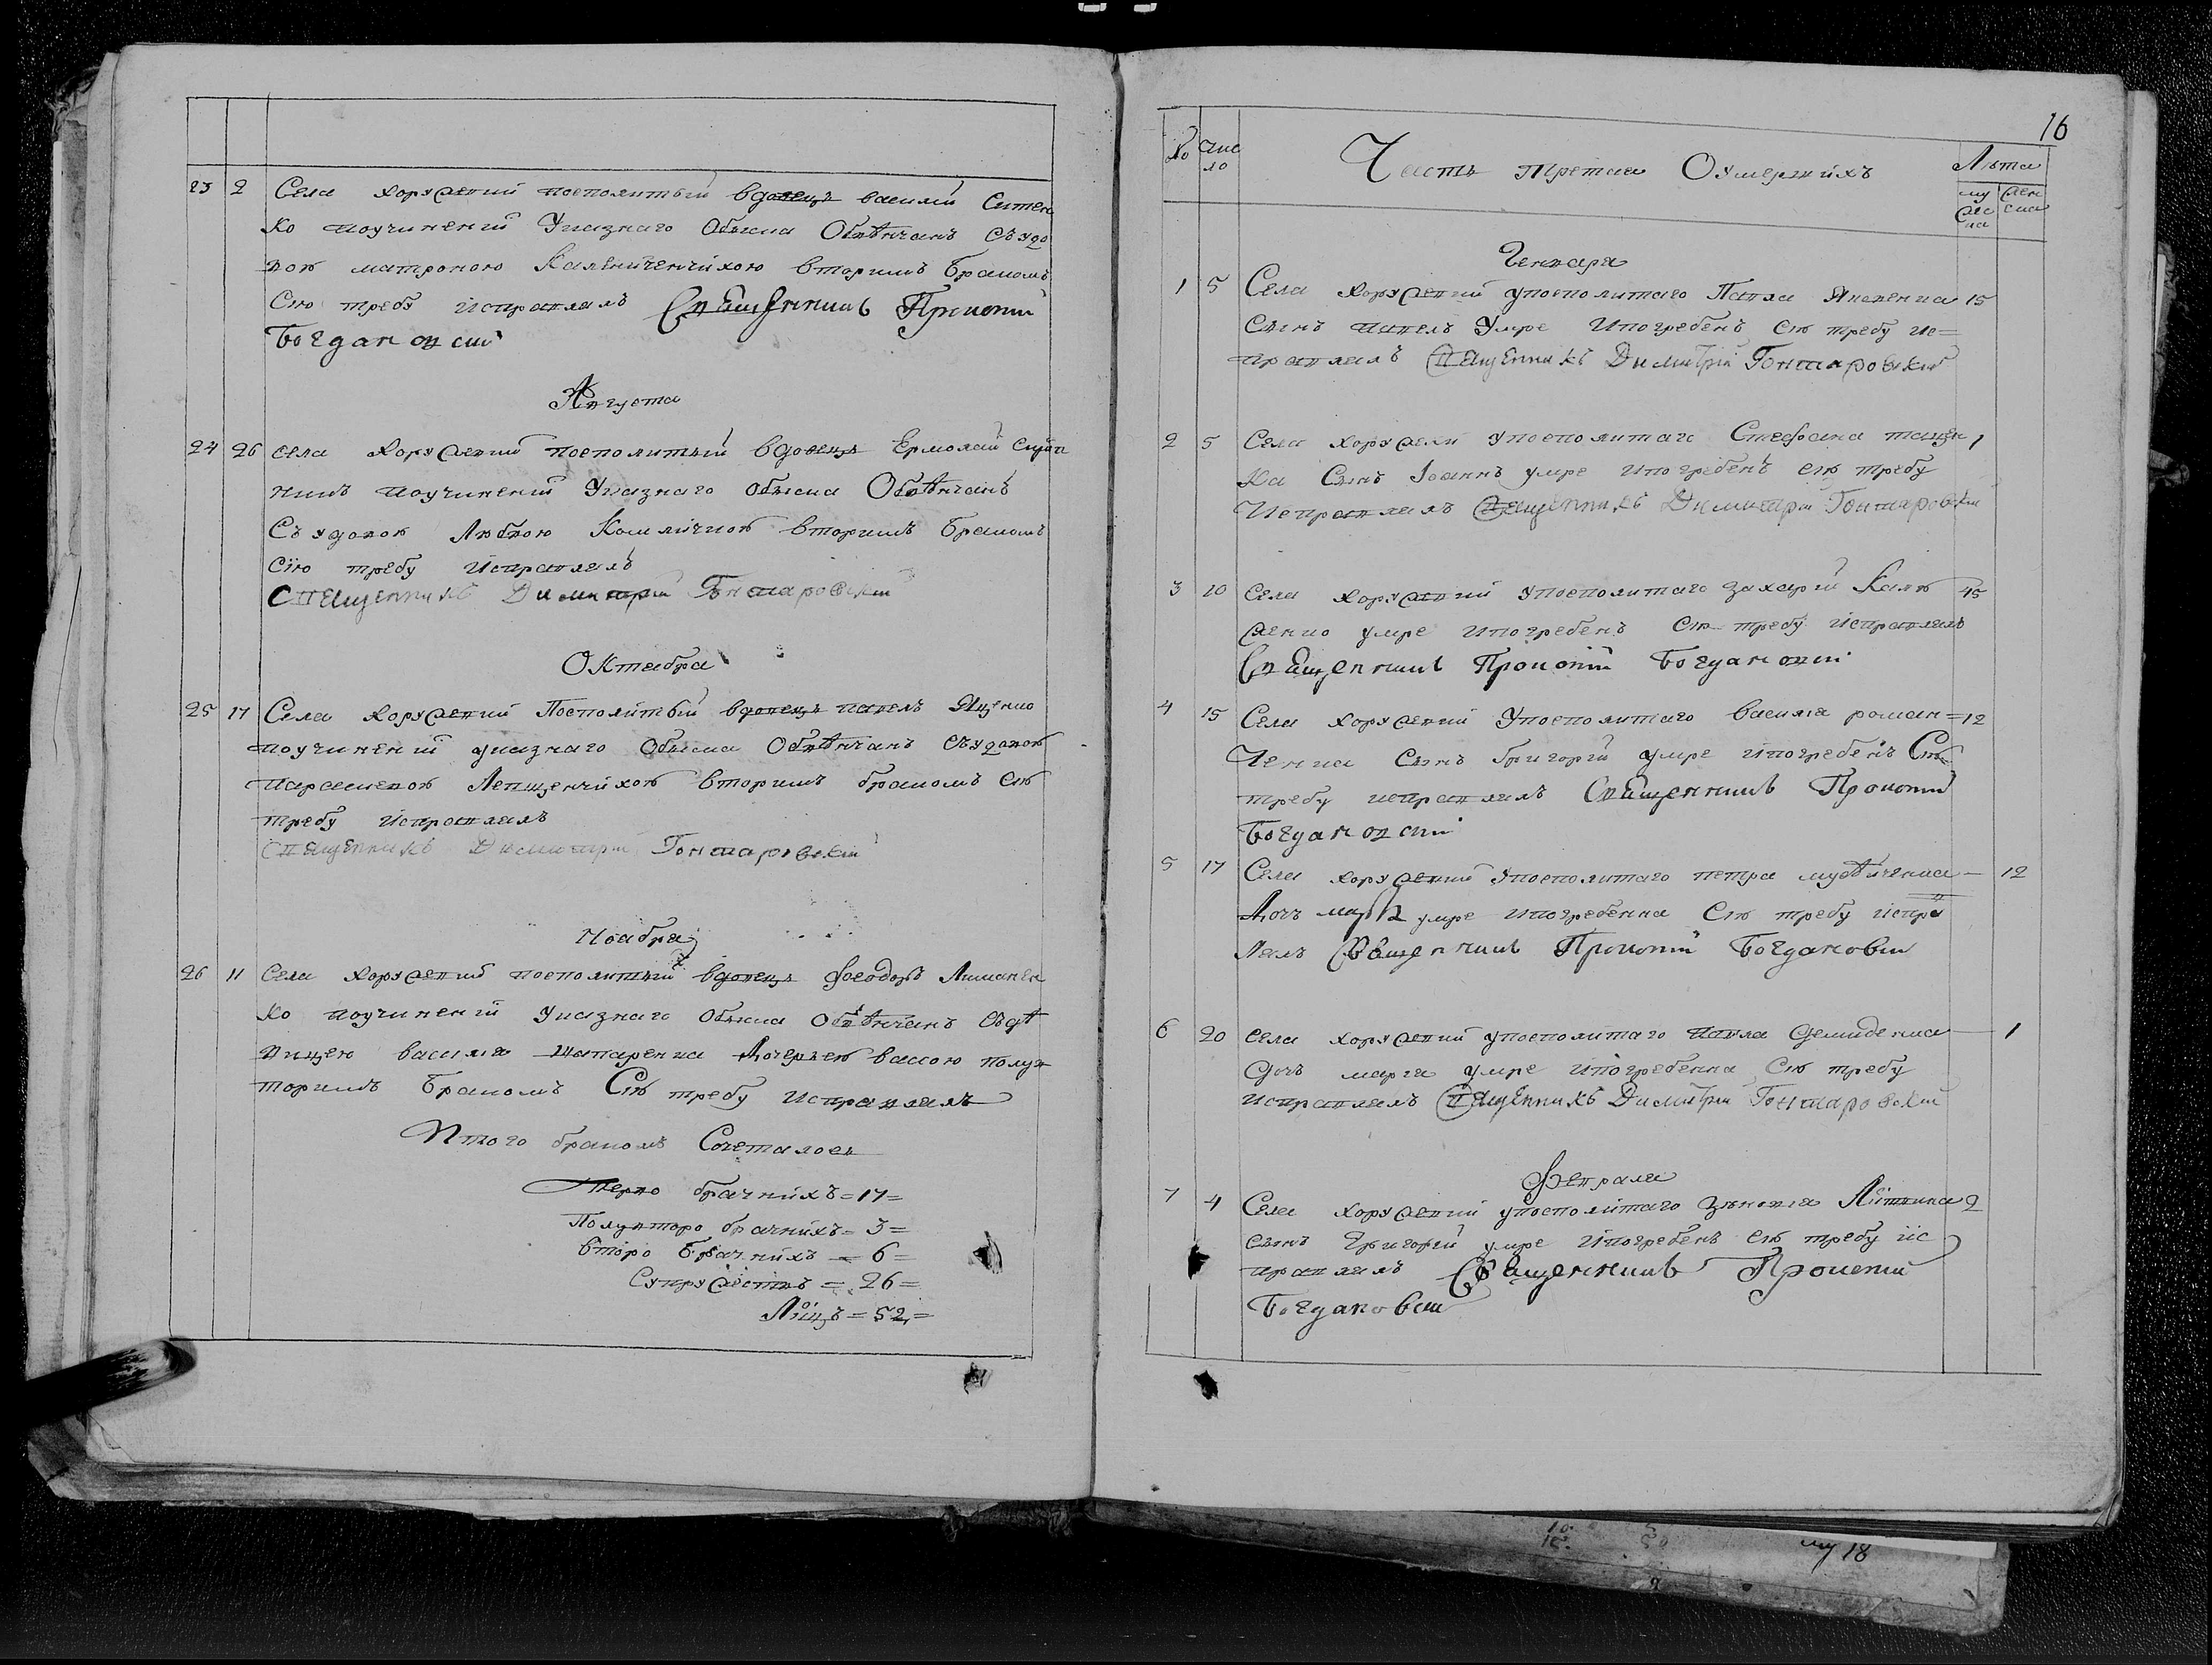 23 2 Села Хоружевки посполитый вдовецъ василий Ситен
ко поучинений Указнаго Обиска Обвѣнчанъ Съвдо
вою матроною Калениченчихою вторимъ бракомъ
Сию требу исправлялъ Священникъ Прокопий
Богдановский
Августа
24 26 села Хоружевки посполитый вдовецъ Ермолай
поучинений Указнаго обиска Обвѣнчанъ
Съ удовою Любвою вторимъ бракомъ
сїю требу исправлялъ
Священникъ Димитрий Гонтаровский
Октабра
25 17 Села Хоружевки Посполитый вдовецъ павелъ Яценко
поучинений указнаго Обиска Обвѣнчанъ съудовою
параскевою вторимъ бракомъ сию
требу исправлялъ
Священникъ Димитрий Гонтаровский
Ноабра
26 11 Села Хоружевки посполитый вдовецъ Феодоръ Лиманен
ко поучинений Указнаго Обиска Обвѣнчанъ Съдѣ
вицею василия Дочерьею вассою полув
торимъ бракомъ Сию требу исправлялъ
Итого браком Сочеталося
Перво брачнихъ = 17 =
Полувторо брачнихъ = 3 =
Второ брачнихъ = 6 =
Супружествъ = 26 =
Лицъ = 52 =
16
№ Число Часть третая Оумершихъ Лѣта
мужеска женска
Генвара
1 5 Села Хоружевки упосполитаго Павла 15
Сынъ павелъ умре ипогребенъ сию требу ис=
правлялъ Священникъ Димитрий Гонтаровский
2 5 Села Хоружевки упосполитаго Стефана 1
ка Сынъ Іоаннъ умре ипогребенъ сию требу
Исправлялъ Священникъ Димитрий Гонтаровский
3 10 Села Хоружевки упосполитаго захарий 45
умре ипогребенъ Сию требу исправлялъ
Священникъ Прокопий Богдановский
4 15 Села Хоружевки Упосполитаго василия роман= 12
ченка Сынъ Григорий умре ипогребенъ Сию
требу исправлялъ Священникъ Прокопий
Богдановский
5 17 Села хоружевки упосполитаго петра 12
Дочъ умре ипогребенна Сию требу испра
влялъ Священникъ Прокопий Богдановский
6 20 села хоружевки упосполитаго павла Демиденка 1
Дочъ марга умре ипогребенна Сию требу
исправлялъ Священникъ Димитрий Гонтаровский
Феврала
7 4 Села хоружевки упосполитаго 2
сынъ Григорий умре ипогребенъ сию требу ис
правлялъ Священникъ Прокопий
Богдановский
му 18